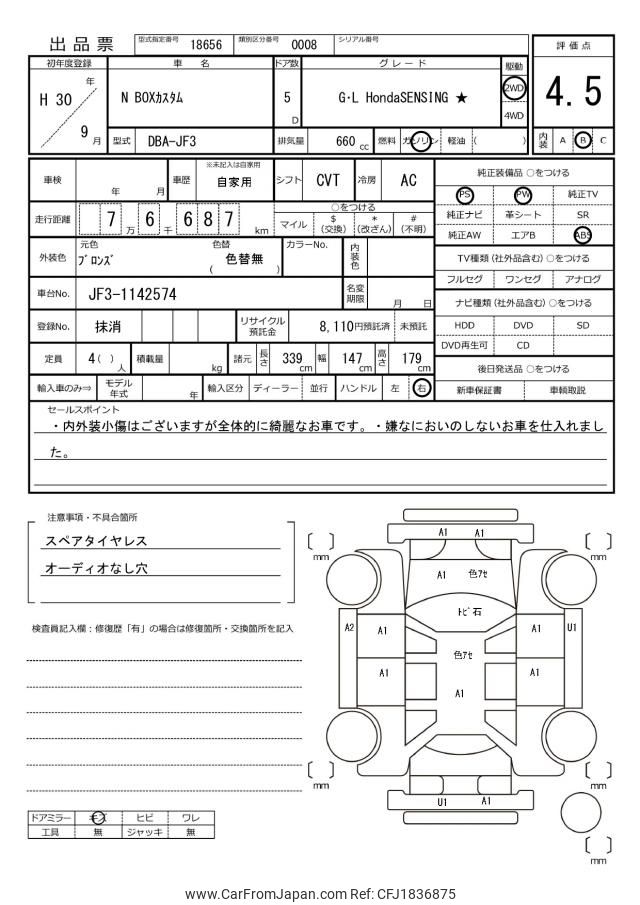 出品票 型式指定番号 18656 類別区分番号 0008 シリアル番号
評価点
4.5
初年度登録 車名 ドア数 グレード 駆動
H 30 年 9 月 N BOXカスタム 5 D G・L HondaSENSING ★ 2WD
4WD
型式 DBA-JF3 排気量 660 cc 燃料 ガソリン 軽油 ( ) 内装 A B C
車検 年 月 車歴 ※未記入は自家用 自家用 シフト CVT 冷房 AC
純正装備品 ○をつける
PS PW 純正TV
純正ナビ 革シート SR
純正AW エアB ABS
走行距離 7 万 6 千 6 8 7 km ○をつける
マイル $(交換) *(改ざん) #(不明)
外装色 元色 ブロンズ 色替 ( 色替無 ) カラーNo. 内装色
TV種類(社外品含む) ○をつける
フルセグ ワンセグ アナログ
車台No. JF3-1142574 名変期限 月 日
ナビ種類(社外品含む) ○をつける
HDD DVD SD
DVD再生可 CD
登録No. 抹消 リサイクル預託金 8,110円預託済 未預託
定員 4( )人 積載量 kg 諸元 長さ 339 cm 幅 147 cm 高さ 179 cm
後日発送品 ○をつける
新車保証書 車輌取説
輸入車のみ⇒ モデル年式 年 輸入区分 ディーラー 並行 ハンドル 左 右
セールスポイント
・内外装小傷はございますが全体的に綺麗なお車です。・嫌なにおいのしないお車を仕入れまし
た。
注意事項・不具合箇所
スペアタイヤレス
オーディオなし穴
検査員記入欄：修復歴「有」の場合は修復箇所・交換箇所を記入
ドアミラー キズ ヒビ ワレ
工具 無 ジャッキ 無
A1 A1
mm mm
A1 色アセ
トビ石
A2 A1 A1 U1
色アセ
A1 A1
A1
mm mm
U1 A1
mm
www.CarFromJapan.com Ref: CFJ1836875